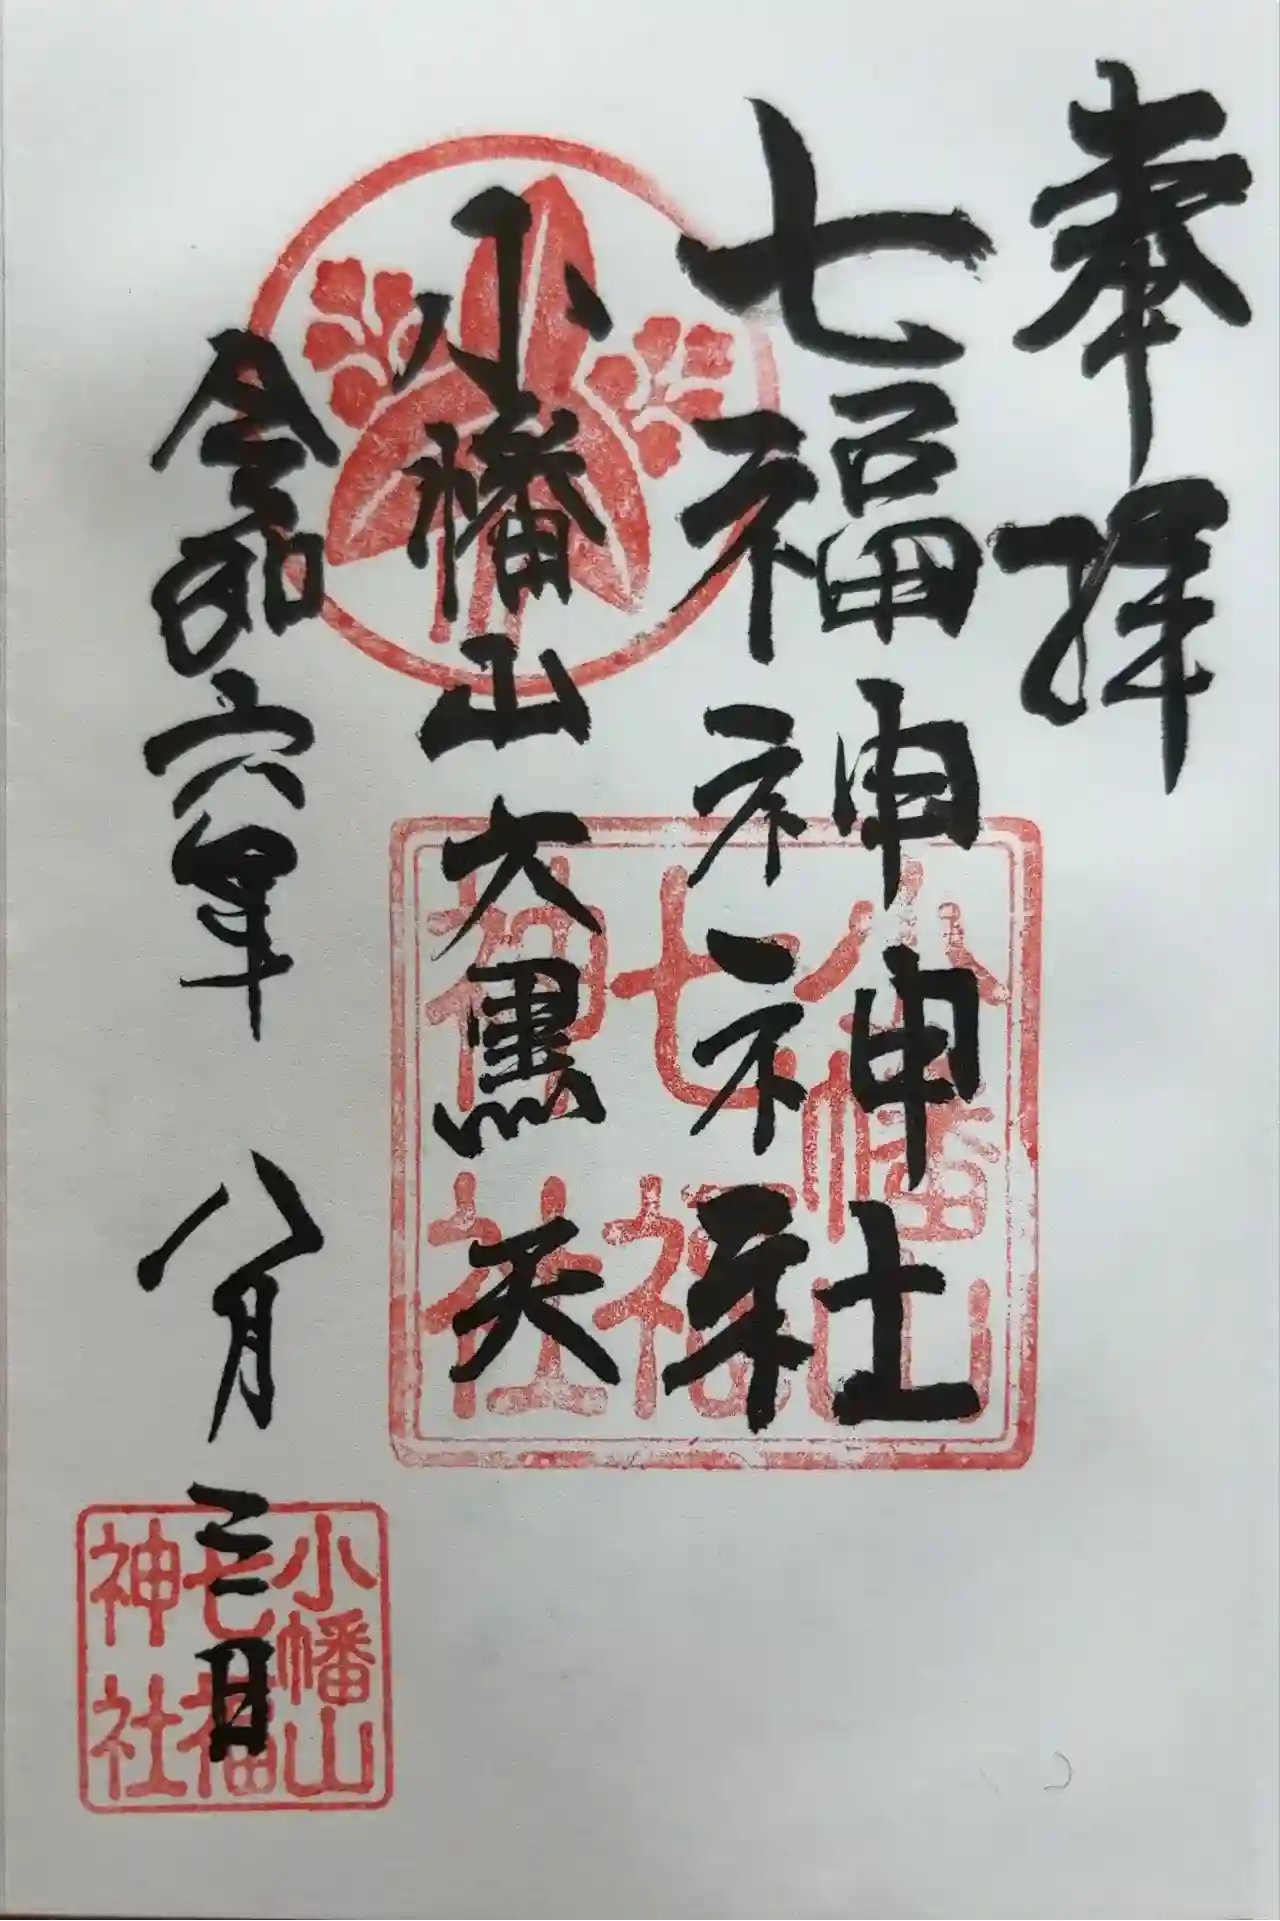 奉拝
七福神神社
小幡山大黒天
令和六年八月三日
小幡山
七福
神社
小幡山
七福
神社